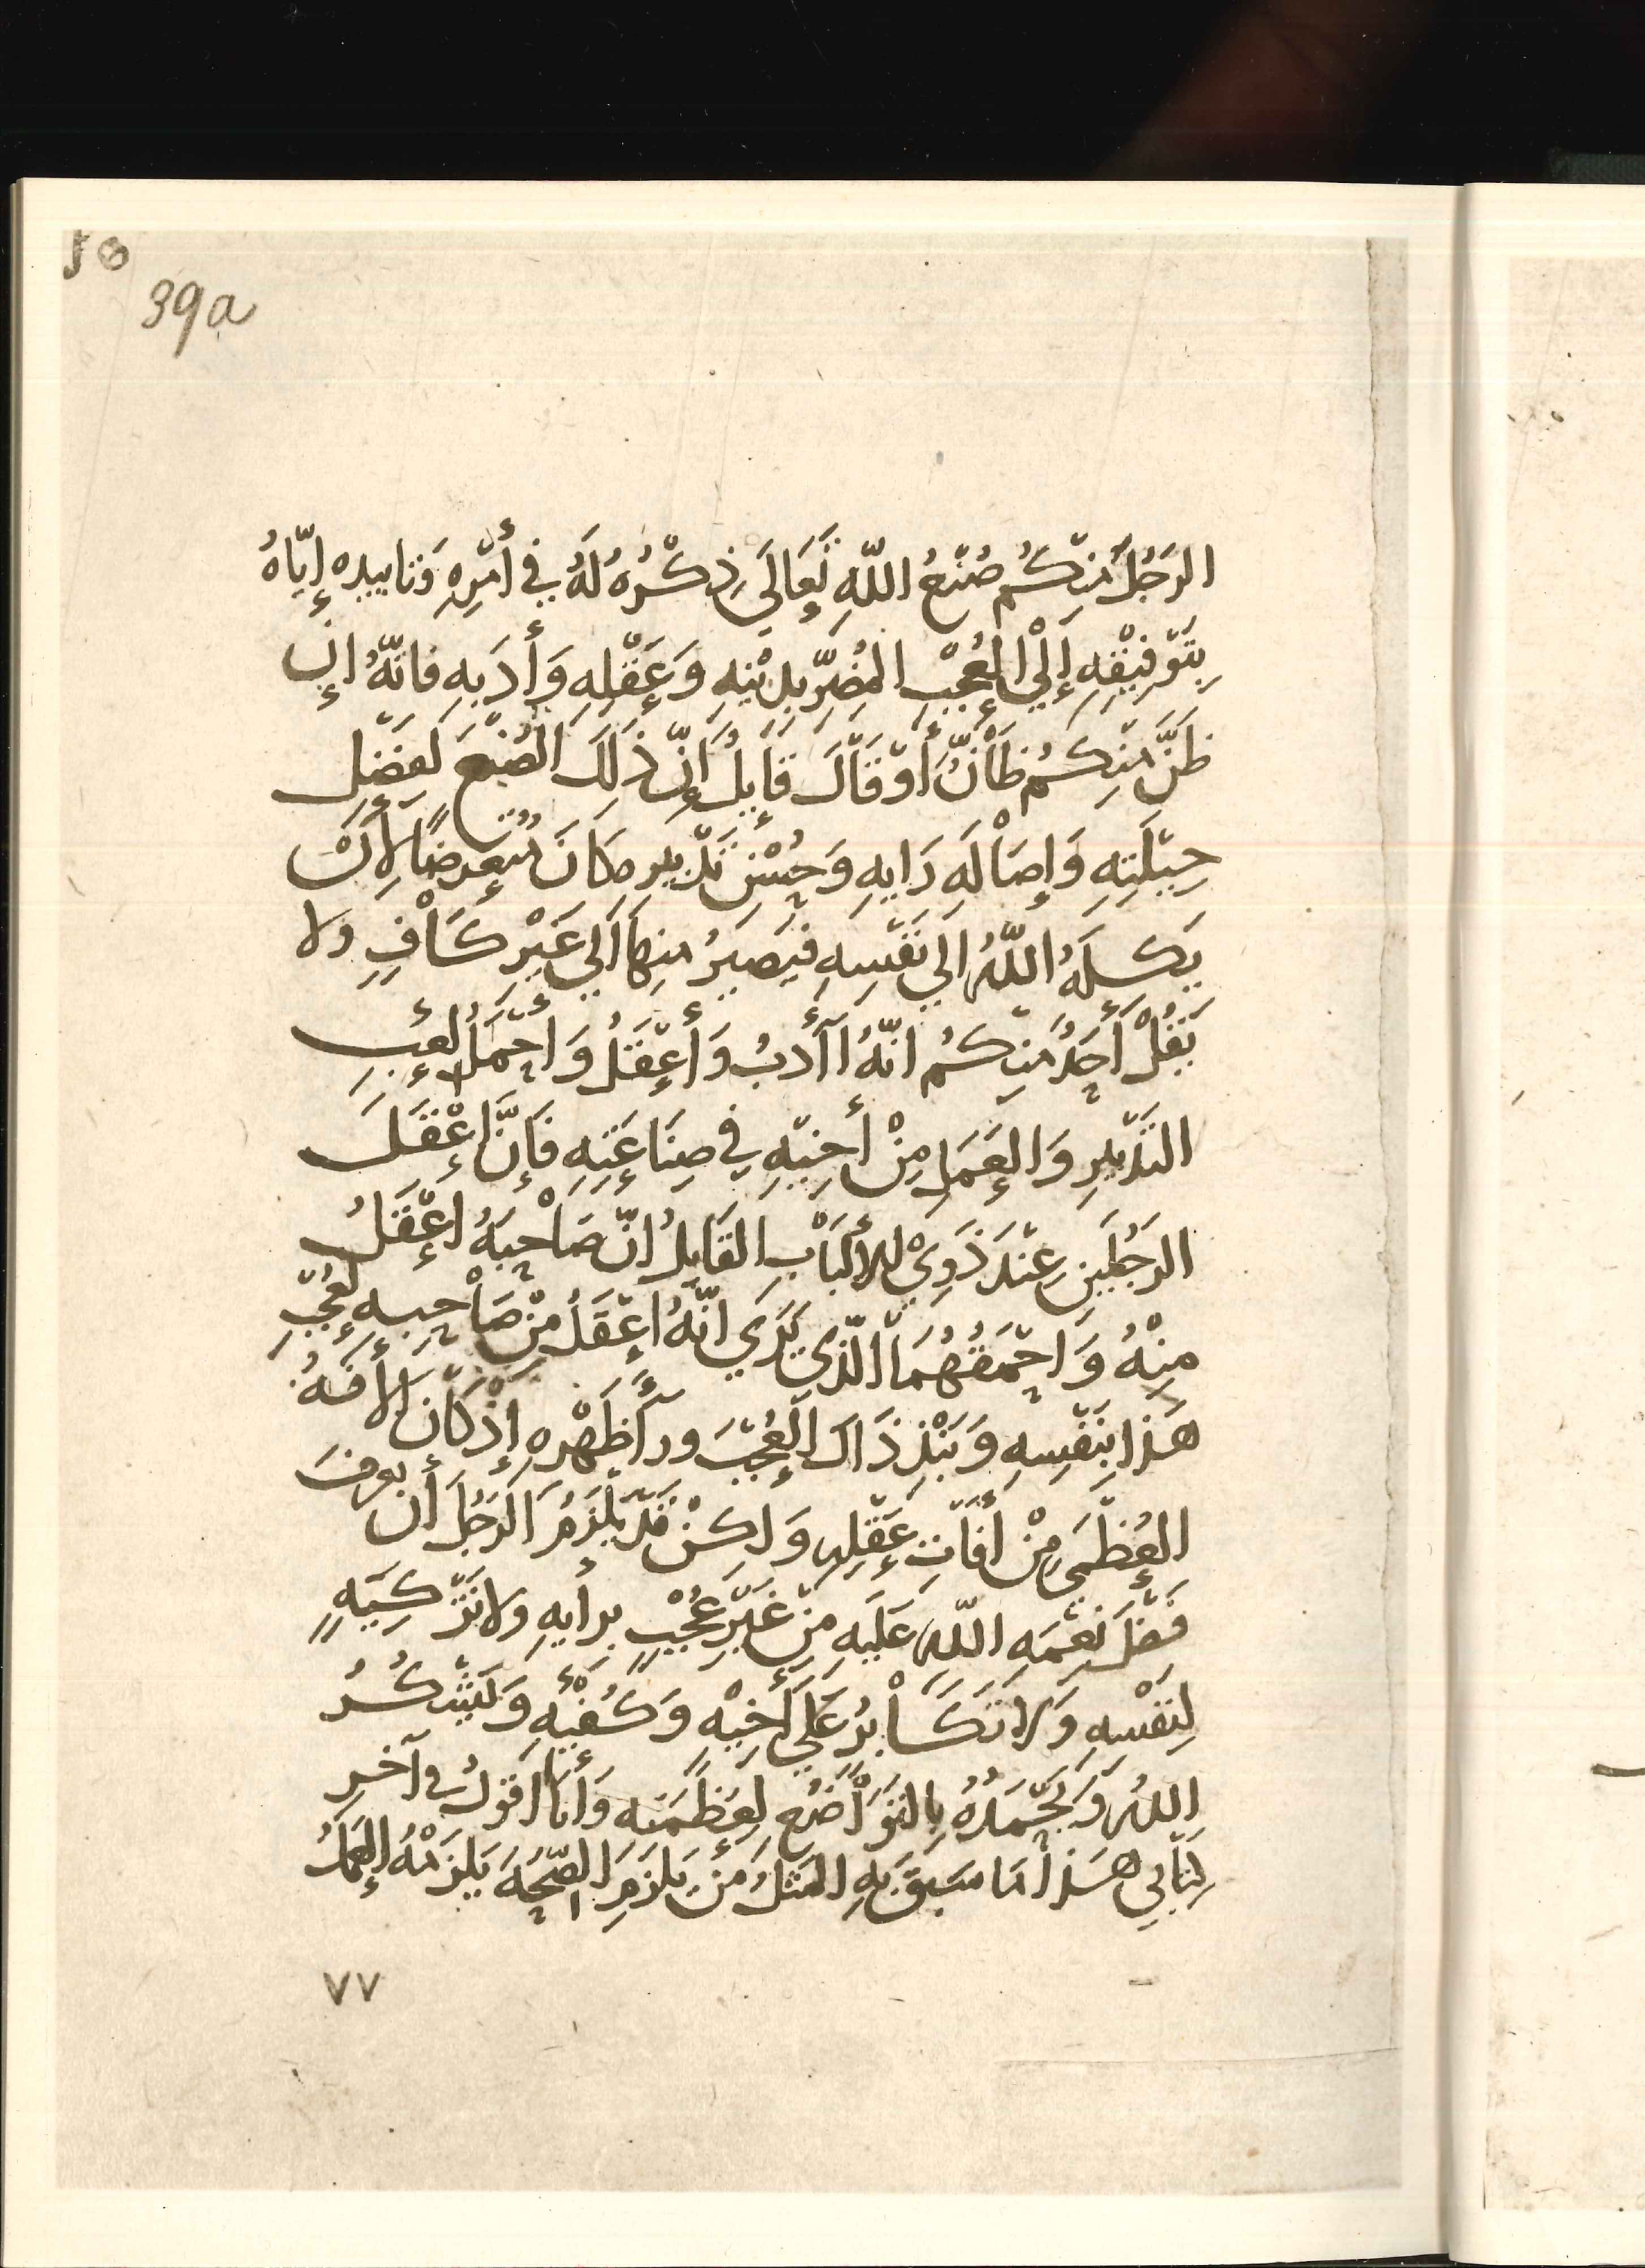 39a
الرَجُلَ مِنكُم صُنْعُ اللّهِ تَعَالَى ذِكْرُهُ لَهُ فِي أَمْرِهِ وَتَاييدِه إِيّاهُ
بِتَوْفِيْقِهِ إِلْى العُجْبِ المُضِرِّ بِدِيْنِهِ وَعَقْلِهِ وَأَدَبِهِ فَانّهُ إن
ظَنَّ مِنكُم ظَانٌّ أَوْ قَالَ قَايِلٌ إِنّ ذَلِكَ الصُنْعَ لفَضْلِ
حِيْلَتِهِ وَإِصَالَهِ رَايِهِ وَحُسْنِ تَدْبِيرِهِ كَانَ مُتَعَرِضًا لِأَنْ
يَكِلَهُ اللّهُ الَي نَفْسِهِ فيَصِيرُ مِنهَا الَي غَيْرِ كَافٍ ولا
يَقُلْ أَحَدٌ مِنكُم انّهُ اَأدبُ وَأَعْقَلُ وَاَحْمَلُ لعِبِ
التَدْبِيرِ وَالعَمَلِ مِنْ أَخِيْهِ فِي صِنَاعَتِهِ فَإِنَّ اعْقَلَ
الرَجُلَينِ عِنْدَ ذَوِيْ الأَلْبَاْبِ القَايِلُ انّ صَاْحِبَهُ اعْقَلُ
مِنْهُ وَاحْمَقُهُمَا الّذِي يَرَي انّهُ اعْقَلُ مِنْ صَاْحِبِهِ لعُجْبِ
هَذا بِنَفْسِهِ وَنَبْذِ ذَاكَ العُجْبَ ورأَ ظَهْرِهِ إِذْ كَانَ الأفَهُ
العُظمَي مِنْ أفَاتِ عَقْلِهِ وَلكِنْ قَدْ يَلْزَمُ الرَجُلَ أن يعرفَ
فَضْلَ نعْمَهِ اللّهِ عَلَيهِ مِنْ غَيْرِ عُجْبٍ بِرأيهِ ولا تَزْكِيَهٍ
لِنَفْسِهِ وَلا تَكَاْبُرٍ عَلَي أَخِيْهِ وَكُفْئِهِ وَليَشْكُرُ
اللهَ وَيَحْمَدُهُ بِالتَوَاضُعِ لِعَظَمَتِه وَأنَا اقولُ في آخرِ
كِتَابِي هَذا مَا سَبَقَ بِهِ المَثَلُ مَن يَلزَمِ الصِّحَهَ يَلزَمْهُ العَمَلُ
٧٧